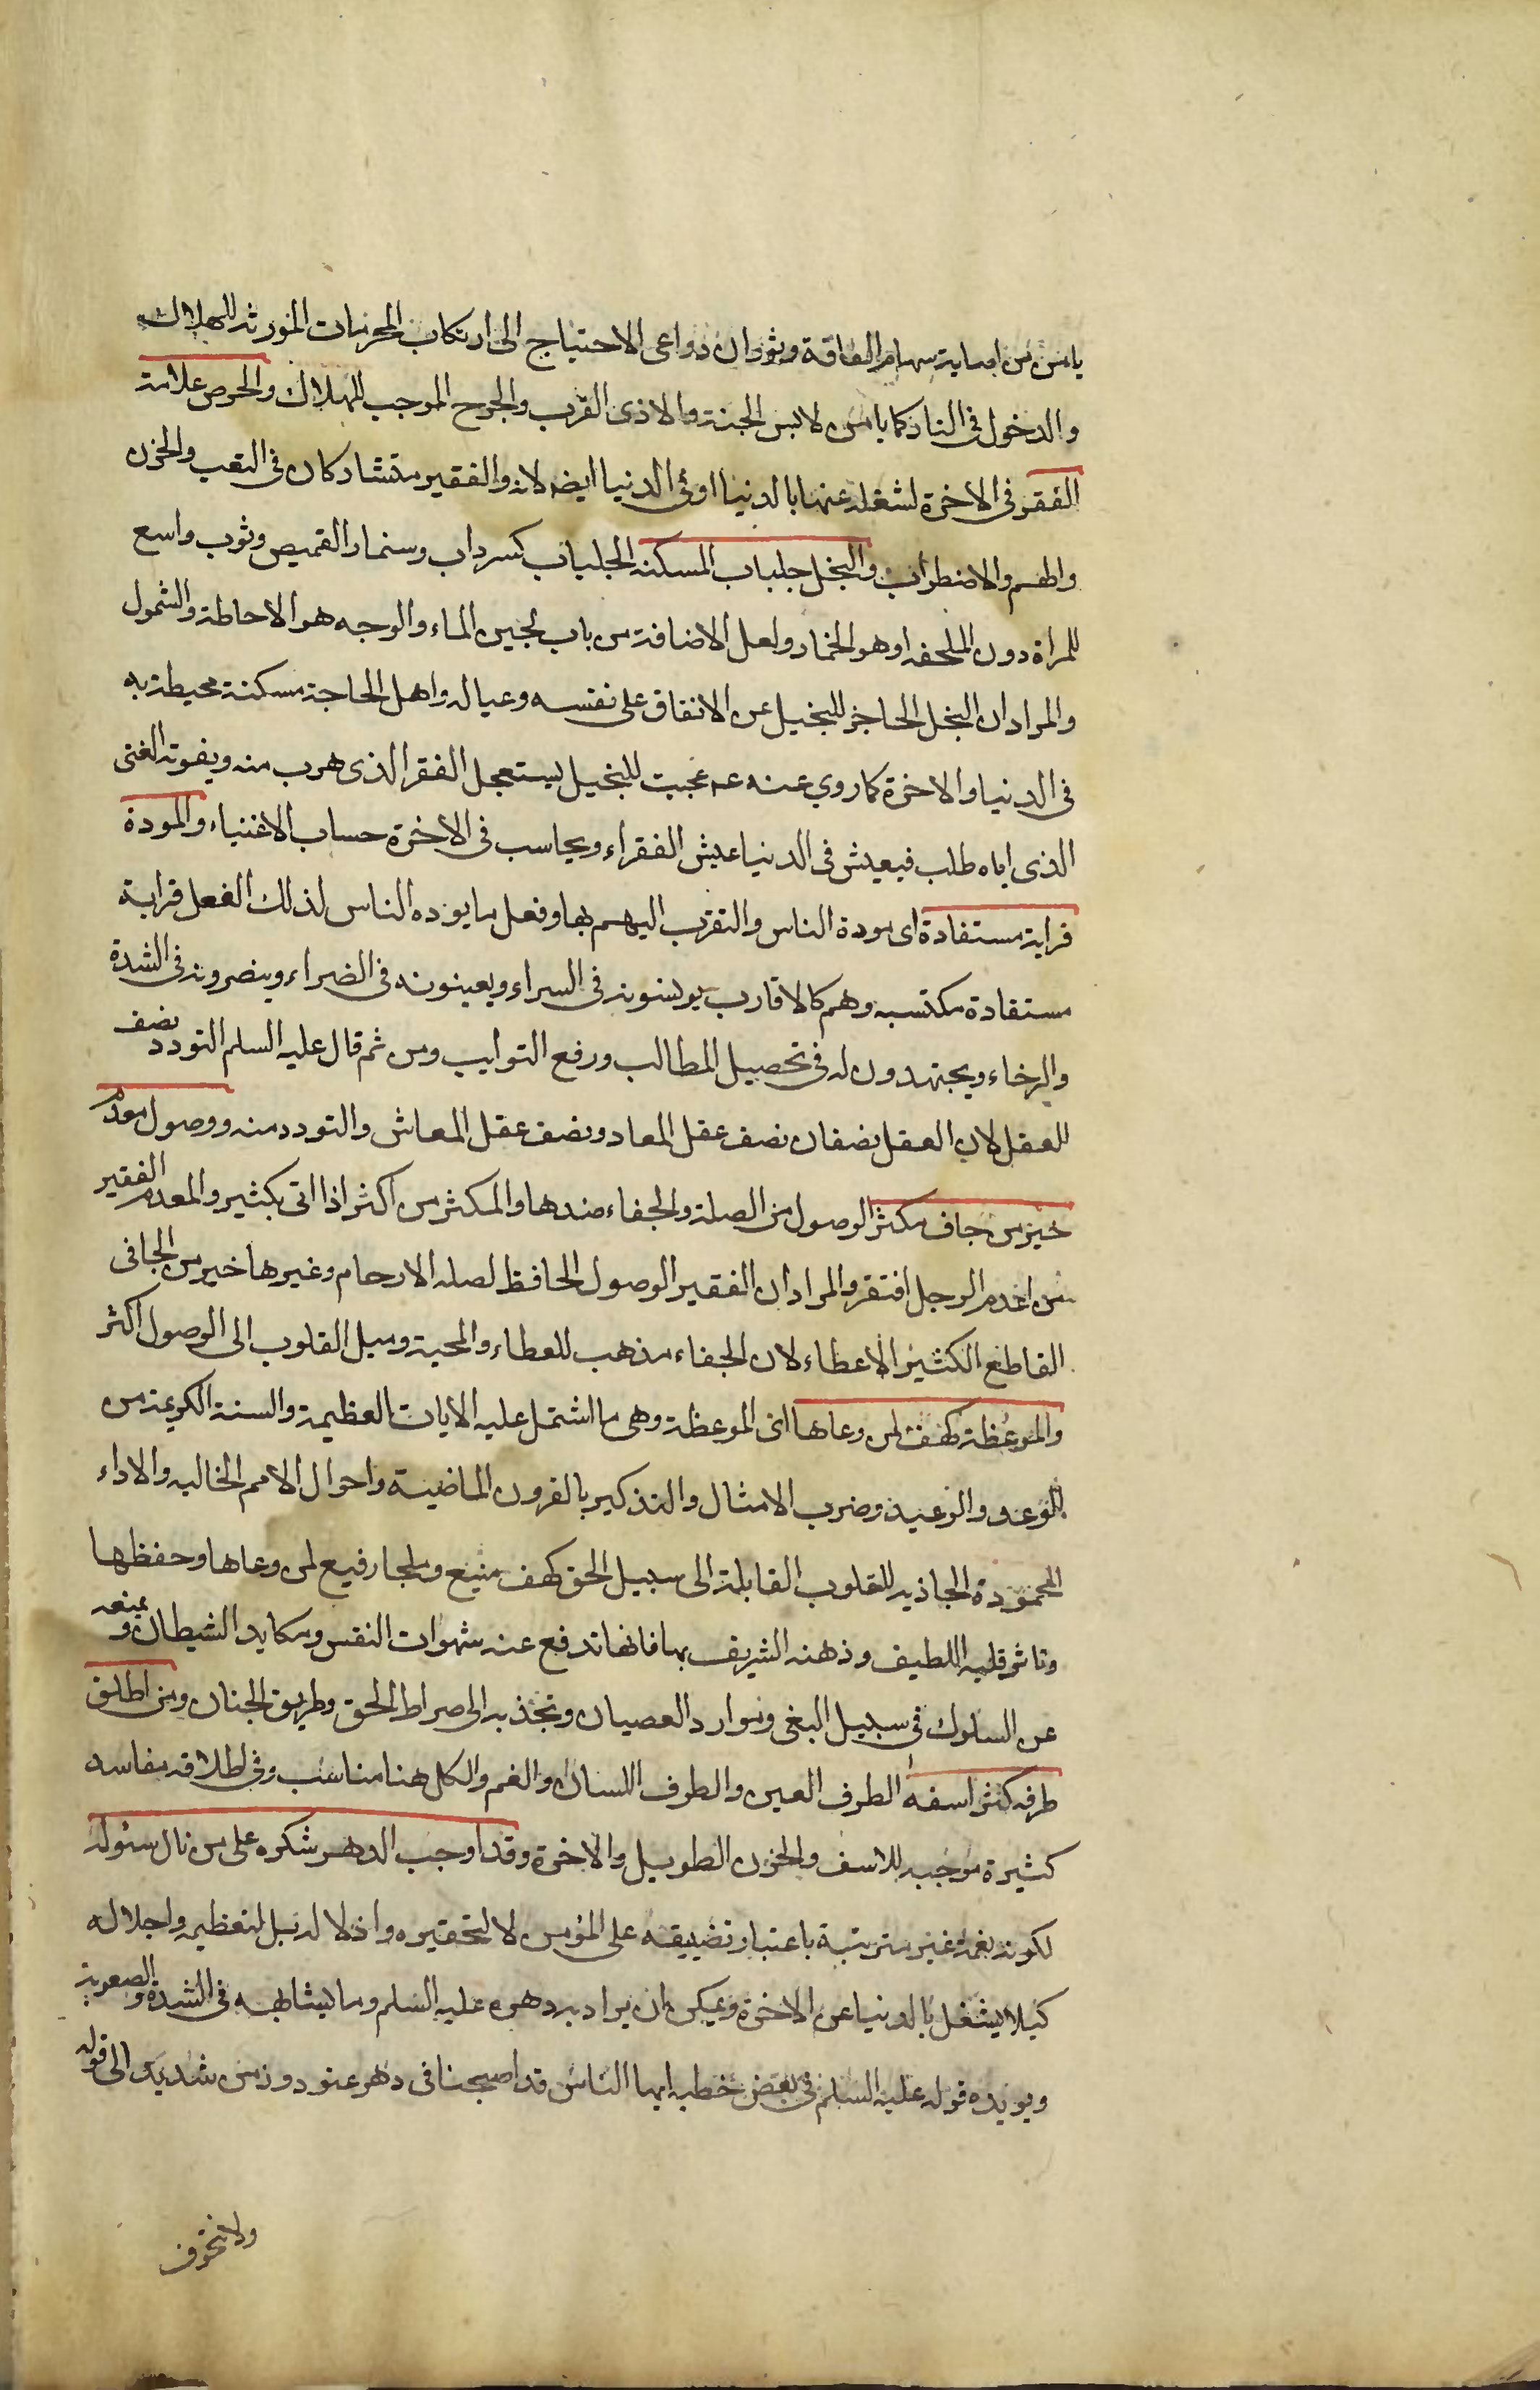 يامن من اصابة سهام الفاقة وثوران دواعى الاحتياج الى ارتكاب المحرمات المورثة للهلاك
والدخول فى النار كما يامن لابس الجنة والاذى القرب والجرح الموجب للهلاك والحرص علامة
الفقر فى الاخرة لشغله عنها بالدنيا او فى الدنيا ايضه لانه والفقير متشاركان فى التعب والحزن
والهم والاضطراب والبخل جلباب المسكنه الجلباب كسرداب وسنمار القميص وثوب واسع
للمراة دون الملحفه او هو الخمار ولعل الاضافة من باب لجين الماء والوجه هو الاحاطة والشمول
والمراد ان البخل الحاجز للبخيل عن الانفاق على نفسه وعياله واهل الحاجة مسكنة محيطة به
فى الدنيا والاخرة كما روي عنه عم عجبت للبخيل يستعجل الفقر الذى هرب منه ويفوته الغنى
الذى اياه طلب فيعيش فى الدنيا عيش الفقراء ويحاسب فى الاخرة حساب الاغنياء والمودة
قرابة مستفادة اى مودة الناس والتقرب اليهم بها وفعل ما يوده الناس لذلك الفعل قرابة
مستفادة مكتسبه وهم كالاقارب يونسونه فى السراء ويعينونه فى الضراء وينصرونه فى الشدة
والرخاء ويجتهدون له فى تحصيل المطالب ورفع النوايب ومن ثم قال عليه السلم التودد نصف
العقل لان العقل نصفان نصف عقل المعاد ونصف عقل المعاش والتودد منه ووصول معدم
خير من جاف مكثر الوصول من الصلة والجفاء ضدها والمكثر من اكثر اذا اتى بكثير والمعدم الفقير
من اعدم الرجل افتقر والمراد ان الفقير الوصول الحافظ لصله الارحام وغيرها خير من الجافى
القاطع الكثير الاعطاء لان الجفاء مذهب للعطاء والمحبة وميل القلوب الى الوصول اكثر
والموعظة كهف لمن وعاها اى الموعظة وهى ما اشتمل عليه الايات العظيمة والسنة الكريمة من
الوعد والوعيد وضرب الامثال والتذكير بالقرون الماضية واحوال الامم الخاليه والاداء
المحمودة الجاذبه للقلوب القابلة الى سبيل الحق كهف منيع وملجا رفيع لمن وعاها وحفظها
وتاثر قلبه اللطيف وذهنه الشريف بها فانها تدفع عنه شهوات النفس ومكايد الشيطان وتمنعه
عن السلوك فى سبيل البغى وموارد العصيان وتجذبه الى صراط الحق وطريق الجنان ومن اطلق
طرفه كثر اسفه الطرف العين والطرف اللسان والفم والكل هنا مناسب وفى اطلاقه مفاسد
كثيرة موجبه للاسف والحزن الطويل والاخرة وقد اوجب الدهر شكره على من نال سئوله
لكونه نعمة غير مترتبة باعتبار تضييقه على المؤمن لا لتحقيره واذلاله بل لتعظيمه واجلاله
كيلا يشغل بالدنيا عن الاخرة ويمكن ان يراد به دهره عليه السلم وما يشابهه فى الشدة والصعوبة
ويويده قوله عليه السلم فى بعض خطبه ايها الناس قد اصبحنا فى دهر عنود وزمن شديد الى قوله
ولا نتخوف